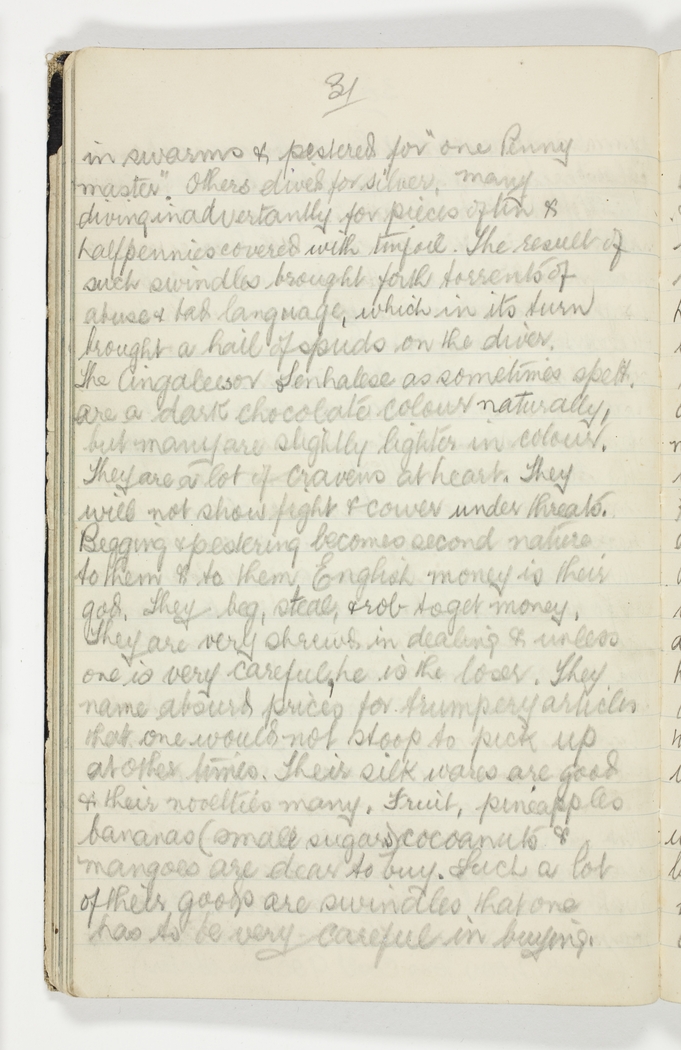 31
in swarms & pestered for "one Penny
master". Others dived for silver, many
diving inadvertantly for pieces of tin &
halfpennies covered with tinfoil. The result of
such swindles brought forth torrents of
abuse & bad language, which in its turn
brought a hail of spuds on the diver.
The Cingaleese or Senhalese as sometimes spelt,
are a dark chocolate colour naturally,
but many are slightly lighter in colour.
They are a lot of cravens at heart. They
will not show fight & cower under threats.
Begging & pestering becomes second nature
to them & to them English money is their
god. They beg, steal, & rob to get money.
They are very shrewd in dealing & unless
one is very careful, he is the loser. They
name absurd prices for trumpery articles
that one would not stoop to pick up
at other times. Their silk wares are good
& their novelties many. Fruit, pineapples
bananas (small sugars) cocoanuts &
mangoes are dear to buy. Such a lot
of their goods are swindles that one
has to be very careful in buying.